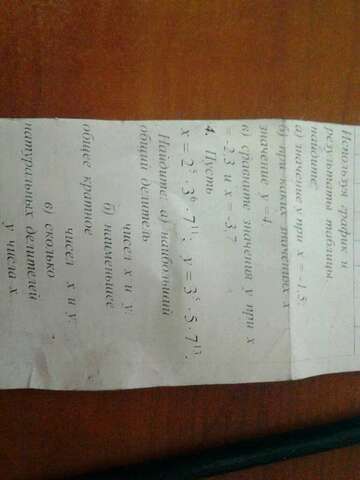 Используя график и
результаты таблицы,
найдите:
а) значение y при x = -1,5;
б) при каких значениях x
значение y =4,
в) сравните значения y при x
= -2,3 и x = -3,7
4. Пусть
x = 2⁵ · 3⁶ · 7¹¹; y = 3⁵ · 5 · 7¹³.
Найдите: а) наибольший
общий делитель
чисел x и y.
б) наименьшее
общее кратное
чисел x и y.
в) сколько
натуральных делителей
у числа x